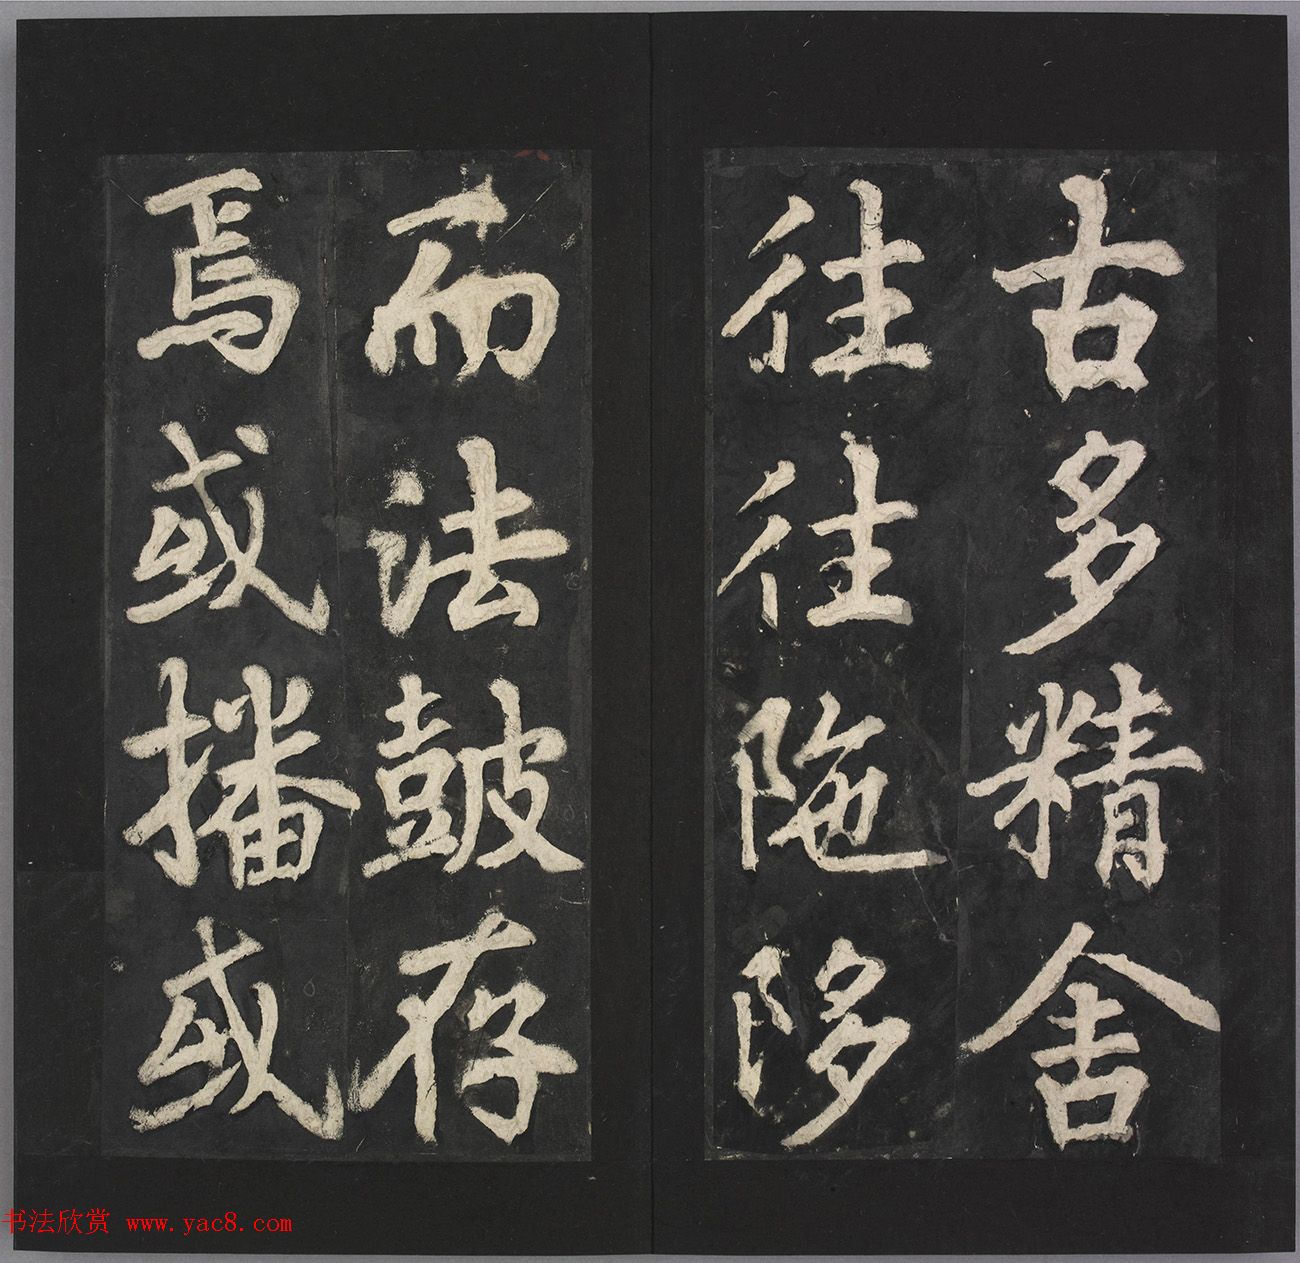 古多精舍
往往陁陊
而法皷存
焉或播或
书法欣赏 www.yac8.com